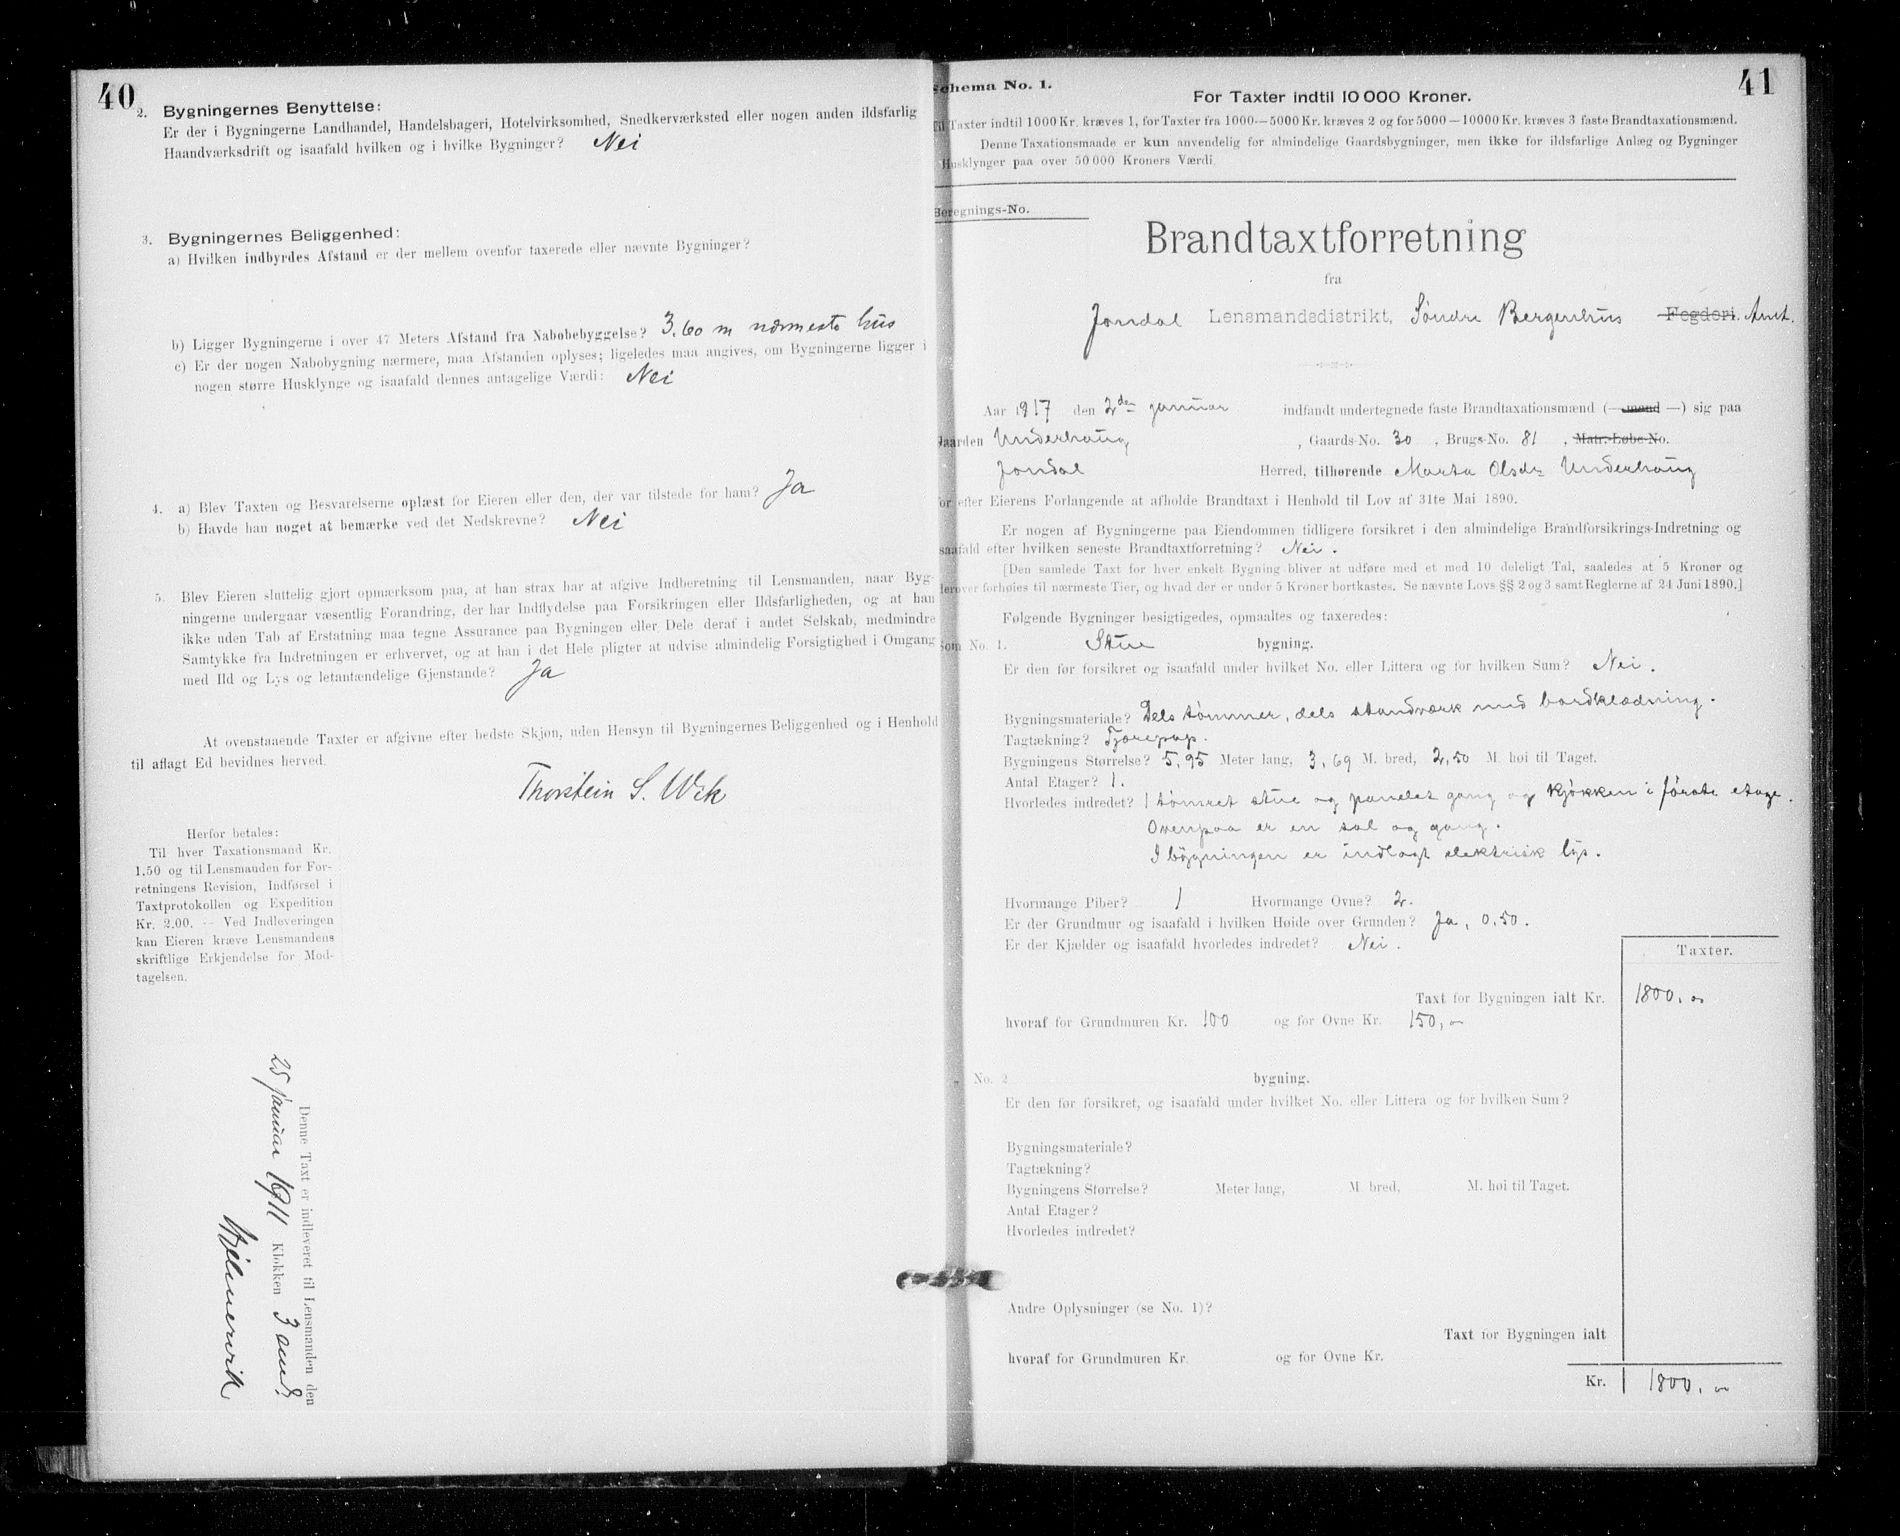 40
2. Bygningernes Benyttelse:
Er der i Bygningerne Landhandel, Handelsbageri, Hotelvirksomhed, Snedkerværksted eller nogen anden ildsfarlig
Haandværksdrift og isaafald hvilken og i hvilke Bygninger? Nei
3. Bygningernes Beliggenhed:
a) Hvilken indbyrdes Afstand er der mellem ovenfor taxerede eller nævnte Bygninger?
b) Ligger Bygningerne i over 47 Meters Afstand fra Nabobebyggelse? 3,60 m nærmeste hus
c) Er der nogen Nabobygning nærmere, maa Afstanden oplyses; ligeledes maa angives, om Bygningerne ligger i
nogen større Husklynge og isaafald dennes antagelige Værdi: Nei
4. a) Blev Taxten og Besvarelserne oplæst for Eieren eller den, der var tilstede for ham? Ja
b) Havde han noget at bemærke ved det Nedskrevne? Nei
5. Blev Eieren sluttelig gjort opmærksom paa, at han strax har at afgive Indberetning til Lensmanden, naar Byg-
ningerne undergaar væsentlig Forandring, der har Indflydelse paa Forsikringen eller Ildsfarligheden, og at han
ikke uden Tab af Erstatning maa tegne Assurance paa Bygningen eller Dele deraf i andet Selskab, medmindre
Samtykke fra Indretningen er erhvervet, og at han i det Hele pligter at udvise almindelig Forsigtighed i Omgang
med Ild og Lys og letantændelige Gjenstande? Ja
At ovenstaaende Taxter er afgivne efter bedste Skjøn, uden Hensyn til Bygningernes Beliggenhed og i Henhold
til aflagt Ed bevidnes herved.
Thorstein S. Wik
Herfor betales:
Til hver Taxationsmand Kr.
1.50 og til Lensmanden for For-
retningens Revision, Indførsel i
Taxtprotokollen og Expedition
Kr. 2.00. -- Ved Indleveringen
kan Eieren kræve Lensmandens
skriftlige Erkjendelse for Mod-
tagelsen.
Denne Taxt er indleveret til Lensmanden den
25 januar 1911 Klokken 3
41
Schema No. 1.
For Taxter indtil 10 000 Kroner.
Til Taxter indtil 1000 Kr. kræves 1, for Taxter fra 1000—5000 Kr. kræves 2 og for 5000—10000 Kr. kræves 3 faste Brandtaxationsmænd.
Denne Taxationsmaade er kun anvendelig for almindelige Gaardsbygninger, men ikke for ildsfarlige Anlæg og Bygninger
Husklynger paa over 50 000 Kroners Værdi.
Beregnings-No.
Brandtaxtforretning
fra
Jondal Lensmandsdistrikt, Søndre Bergenhus Fogderi. Amt.
Aar 1917 den 2den januar indfandt undertegnede faste Brandtaxationsmænd (—mand —) sig paa
Gaarden Underhaug, Gaards-No. 30, Brugs-No. 81, Matr.-Løbe-No.
Jondal Herred, tilhørende Marta Olsdr Underhaug
for efter Eierens Forlangende at afholde Brandtaxt i Henhold til Lov af 31te Mai 1890.
Er nogen af Bygningerne paa Eiendommen tidligere forsikret i den almindelige Brandforsikrings-Indretning og
isaafald efter hvilken seneste Brandtaxtforretning? Nei.
[Den samlede Taxt for hver enkelt Bygning bliver at udføre med et med 10 deleligt Tal, saaledes at 5 Kroner og
derover forhøies til nærmeste Tier, og hvad der er under 5 Kroner bortkastes. Se nævnte Lovs §§ 2 og 3 samt Reglerne af 24 Juni 1890.]
Følgende Bygninger besigtigedes, opmaaltes og taxeredes:
Som No. 1. Stue bygning.
Er den før forsikret og isaafald under hvilket No. eller Littera og for hvilken Sum? Nei.
Bygningsmateriale? Dels tømmer, dels standværk med bordklædning.
Tagtækning? Tjærepap.
Bygningens Størrelse? 5,95 Meter lang, 3,69 M. bred, 2,50 M. høi til Taget.
Antal Etager? 1.
Hvorledes indredet? 1 tømret stue og panelet gang og kjøkken i første etage.
Ovenpaa er en sal og gang.
I bygningen er indlagt elektrisk lys.
Hvormange Piber? 1 Hvormange Ovne? 2.
Er der Grundmur og isaafald i hvilken Høide over Grunden? Ja, 0,50.
Er der Kjælder og isaafald hvorledes indredet? Nei.
Taxter.
Taxt for Bygningen ialt Kr. 1800,00
hvoraf for Grundmuren Kr. 100 og for Ovne Kr. 150,00
„ No. 2 bygning.
Er den før forsikret, og isaafald under hvilket No. eller Littera og for hvilken Sum?
Bygningsmateriale?
Tagtækning?
Bygningens Størrelse? Meter lang, M. bred, M. høi til Taget.
Antal Etager?
Hvorledes indredet?
Andre Oplysninger (se No. 1)?
Taxt for Bygningen ialt
hvoraf for Grundmuren Kr. og for Ovne Kr.
Kr. 1800,00